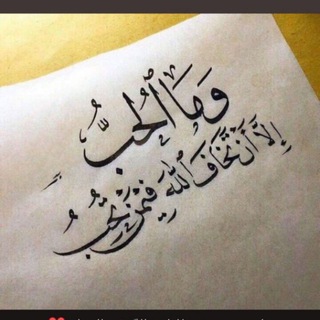 وَمَا الْحُبُّ
إِلَّا أَنْ تَخَافَ اللَّهَ فِيمَنْ تُحِبُّ